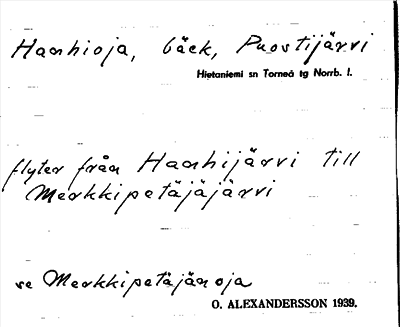 Haanhioja, bäck, Puostijärvi
Hietaniemi sn Torneå tg Norrb. l.
flyter från Haanhijärvi till
Merkkipetäjäjärvi
se Merkkipetäjänoja
O. ALEXANDERSSON 1939.